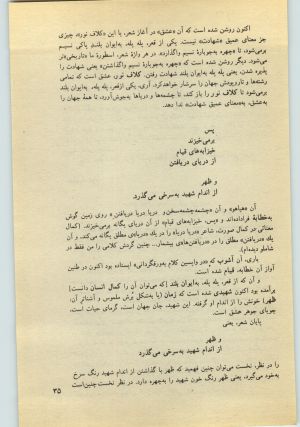 اکنون روشن شده است که آن «عشق» در آغاز شعر، با این «کلاف نور»، چیزی
جز معنای عمیق «شهادت» نیست. یکی از قعر، پله پله، به‌ایوان بلند پاکی نسیم
برمی‌شود، تا «چهره به‌جوبارهٔ نسیم واگذارد». در هر واژهٔ شعر، اسطورهٔ ما «تاریخی»تر
می‌شود. دیگر روشن شده است که «چهره به‌جوبارهٔ نسیم واگذاشتن» یعنی شهادت را
پذیره شدن، یعنی پله پله به‌ایوان بلند شهادت رفتن. کلاف نور، عشق است که تمامی
رشته‌ها و تاروپودش جهان را سرشار خواهدکرد. آری، یکی ازقعر، پله پله، به‌ایوان بلند
برمی‌شود تا کلاف نور را باز کند، تا چشمه‌ها و دریاها به‌جوش‌آورد، تا همهٔ جهان را
به‌عشق، به‌معنای عمیق «شهادت» ندا دهد.
پس
برمی‌خیزند
خیزابه‌های قیام
از دریای دریافتن
و ظهر
از اندام شهید به‌سرخی می‌گذرد.
آن «هیاهو» و آن «چشمه‌چشمه‌سخن» و دریا دریا دریافتن» و روی زمین گوش
به‌خطابهٔ فراداده‌اند و «پس، خیزابه‌های قیام» از آن دریای یگانه برمی‌خیزند. (کمال
معنائی در کمال صورت، شاعر دریادریا را در یك «دریا»ی مطلق یگانه می‌کند، و آن
یك «دریافتن» مطلق را در «دریافتن‌ها»ی پیشمان. چنین گردش کلامی را من فقط در
شاملو دیده‌ام).
باری، آن آشوب که «در واپسین کلام به‌ورقگردانی» ایستاده بود اکنون در طنین
آواز آن خطابه، قیام شده است.
و آن که از قعر، پله پله، به‌ایوان بلند (که می‌توان آن را کمال انسان دانست)
برآمده بود اکنون شهیدی شده است که زمان (یا به‌شکل برش ملموس و آشناتر آن،
ظهر) خونش را از اندام او گرفته. این شهید، جان جهان است، گرمای حیات است،
چوبای جوهر عشق است.
پایان شعر، یعنی
و ظهر
از اندام شهید به‌سرخی می‌گذرد
را در نظر، نخست می‌توان چنین فهمید که ظهر با گذاشتن از اندام شهید رنگ سرخ
به‌خود می‌گیرد، یعنی ظهر رنگ خون شهید را به‌چهره دارد. در نظر نخست چنین‌است
۳۵